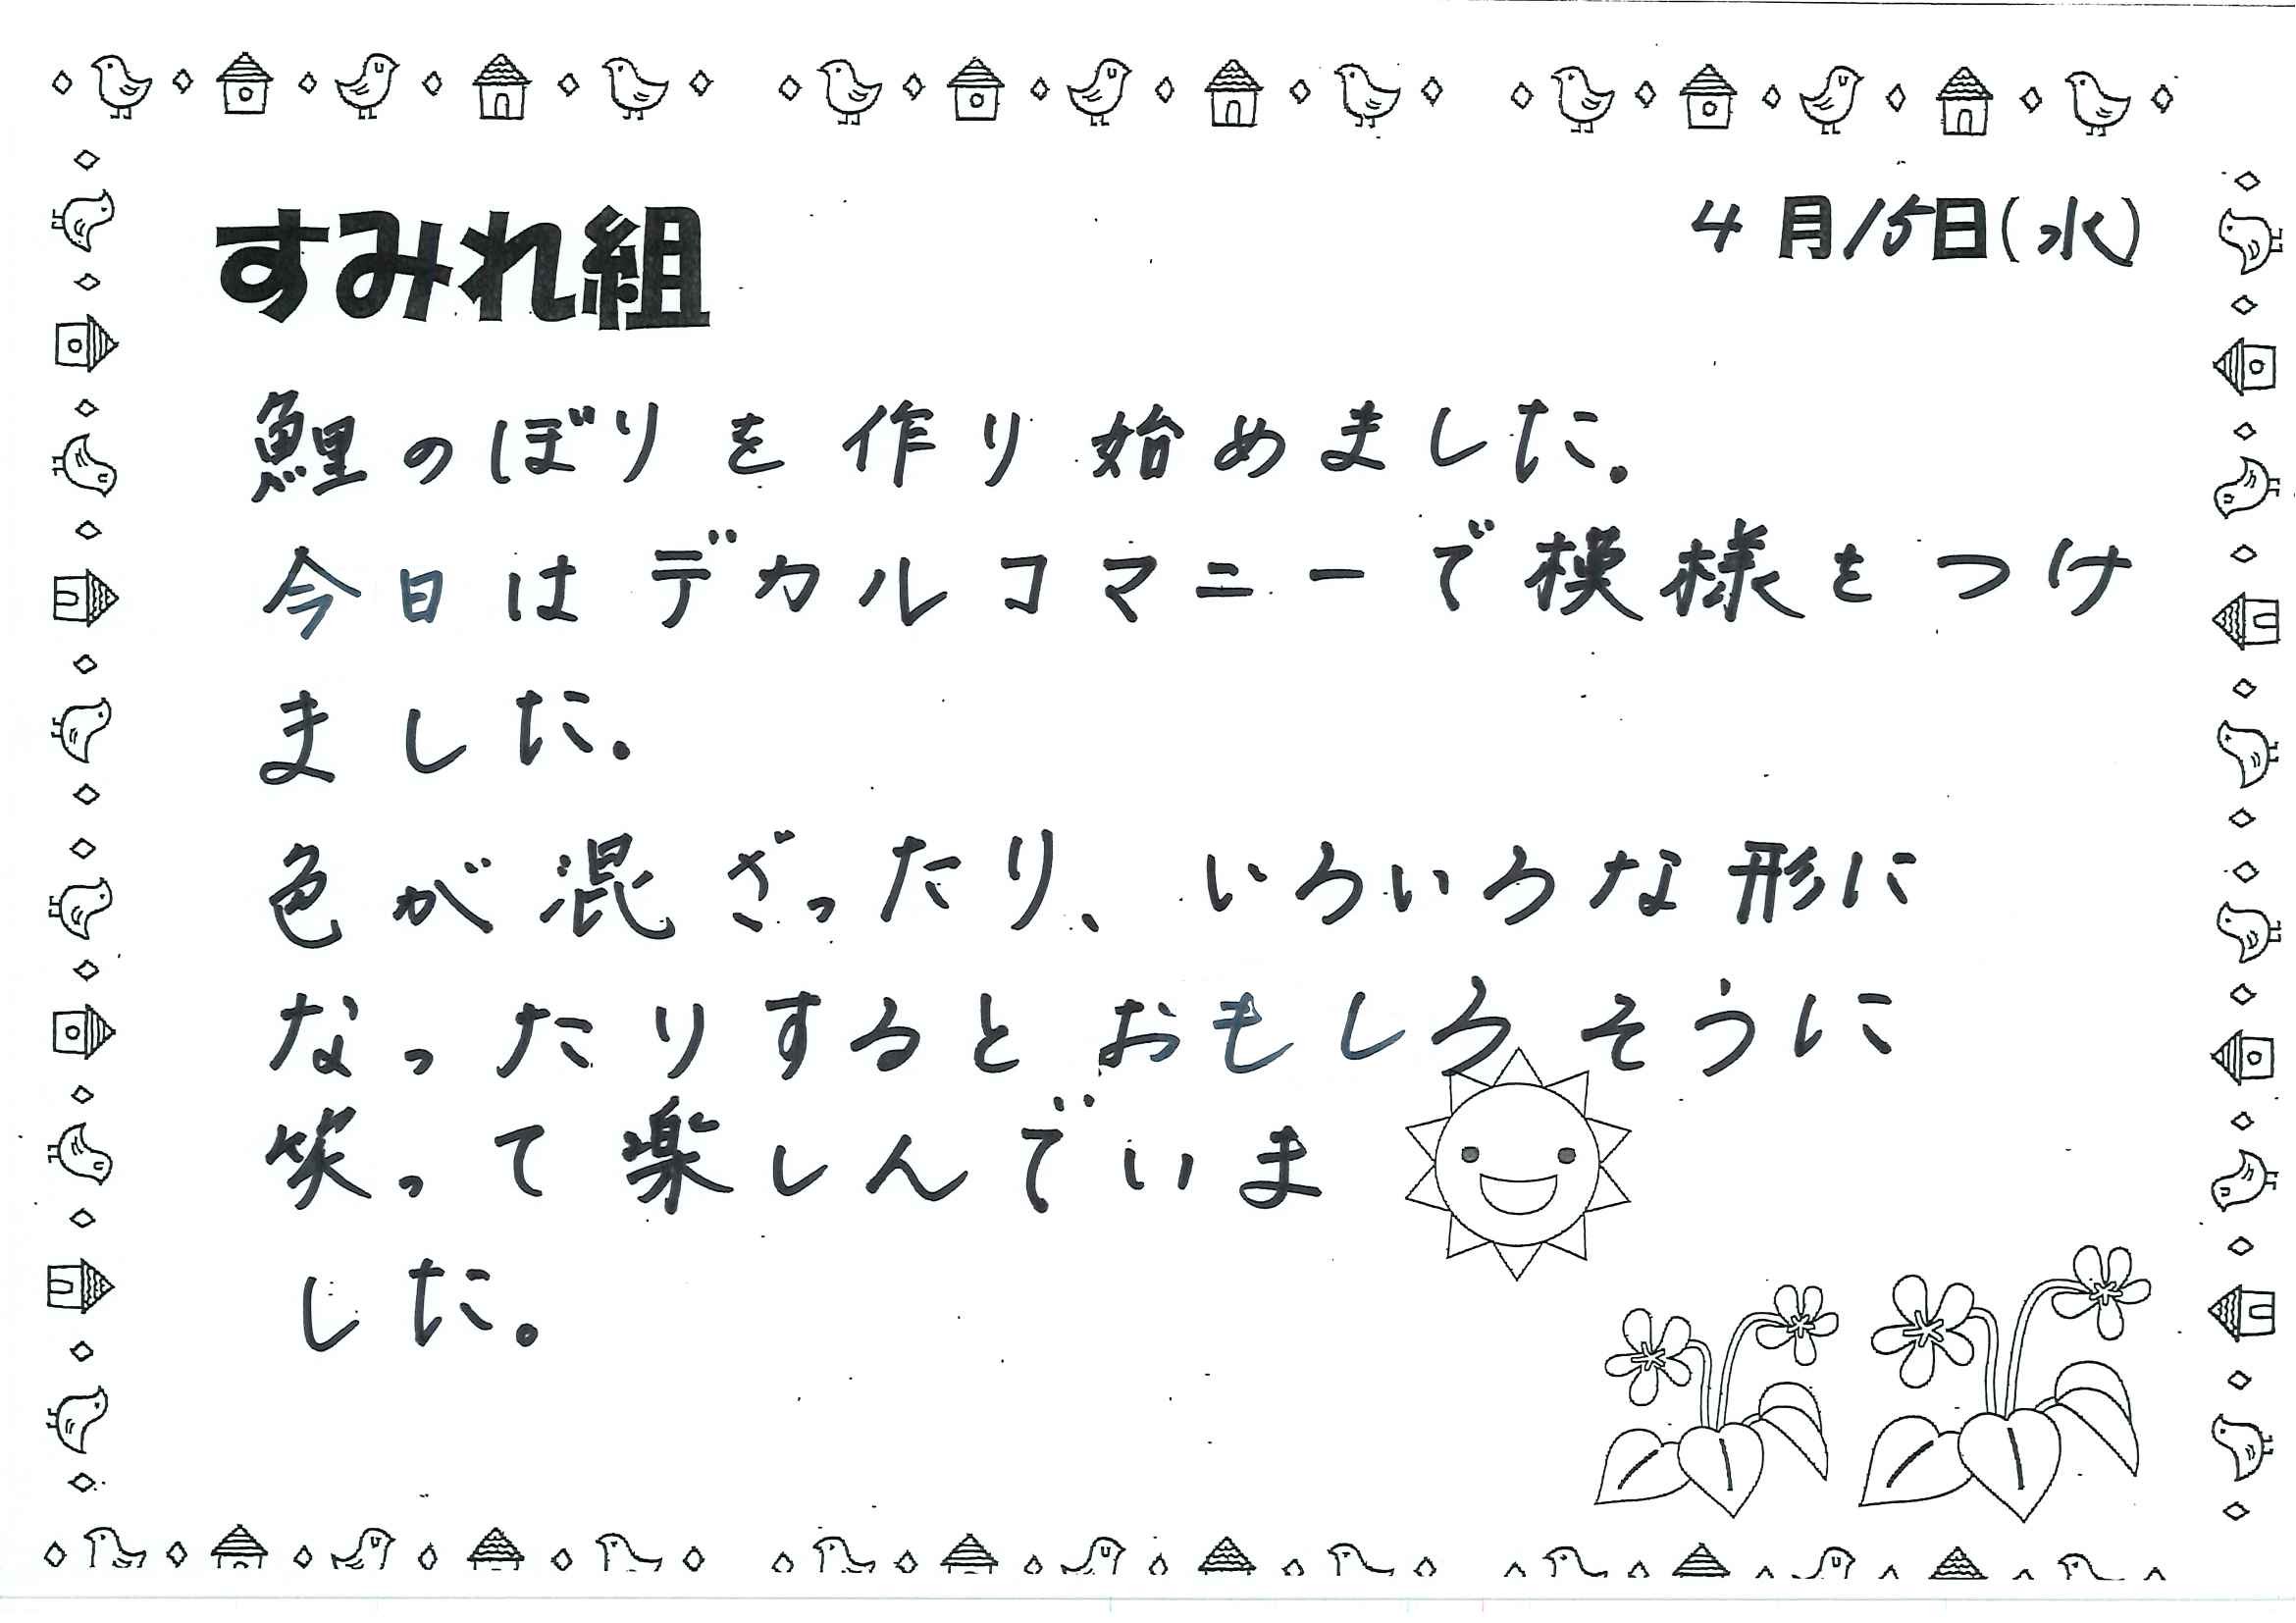 すみれ組
4月15日(水)
鯉のぼりを作り始めました。
今日はデカルコマニーで模様をつけ
ました。
色が混ざったり、いろいろな形に
なったりするとおもしろそうに
笑って楽しんでいま
した。